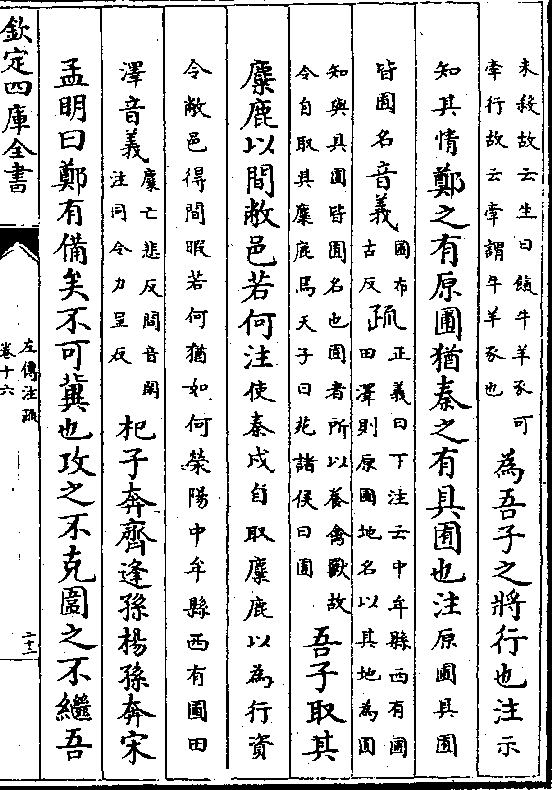 未殺故云生曰餼牛羊豕可
牽行故云牽謂牛羊豕也
為吾子之將行也注示
知其情鄭之有原圃猶秦之有具囿也注原圃具囿
皆囿名音義
圃布
古反
疏
正義曰下注云中牟縣西有圃
田澤則原圃地名以其地為囿
知與具囿皆囿名也囿者所以養禽獸故
令自取其麋鹿焉天子曰苑諸侯曰囿
吾子取其
麋鹿以間敝邑若何注使秦戍自取麋鹿以為行資
令敝邑得間暇若何猶如何榮陽中牟縣西有圃田
澤音義
麋亡悲反間音閑
注同令力呈反
杞子奔齊逢孫楊孫奔宋
孟明曰鄭有備矣不可冀也攻之不克圍之不繼吾
欽定四庫全書
左傳注疏
卷十六